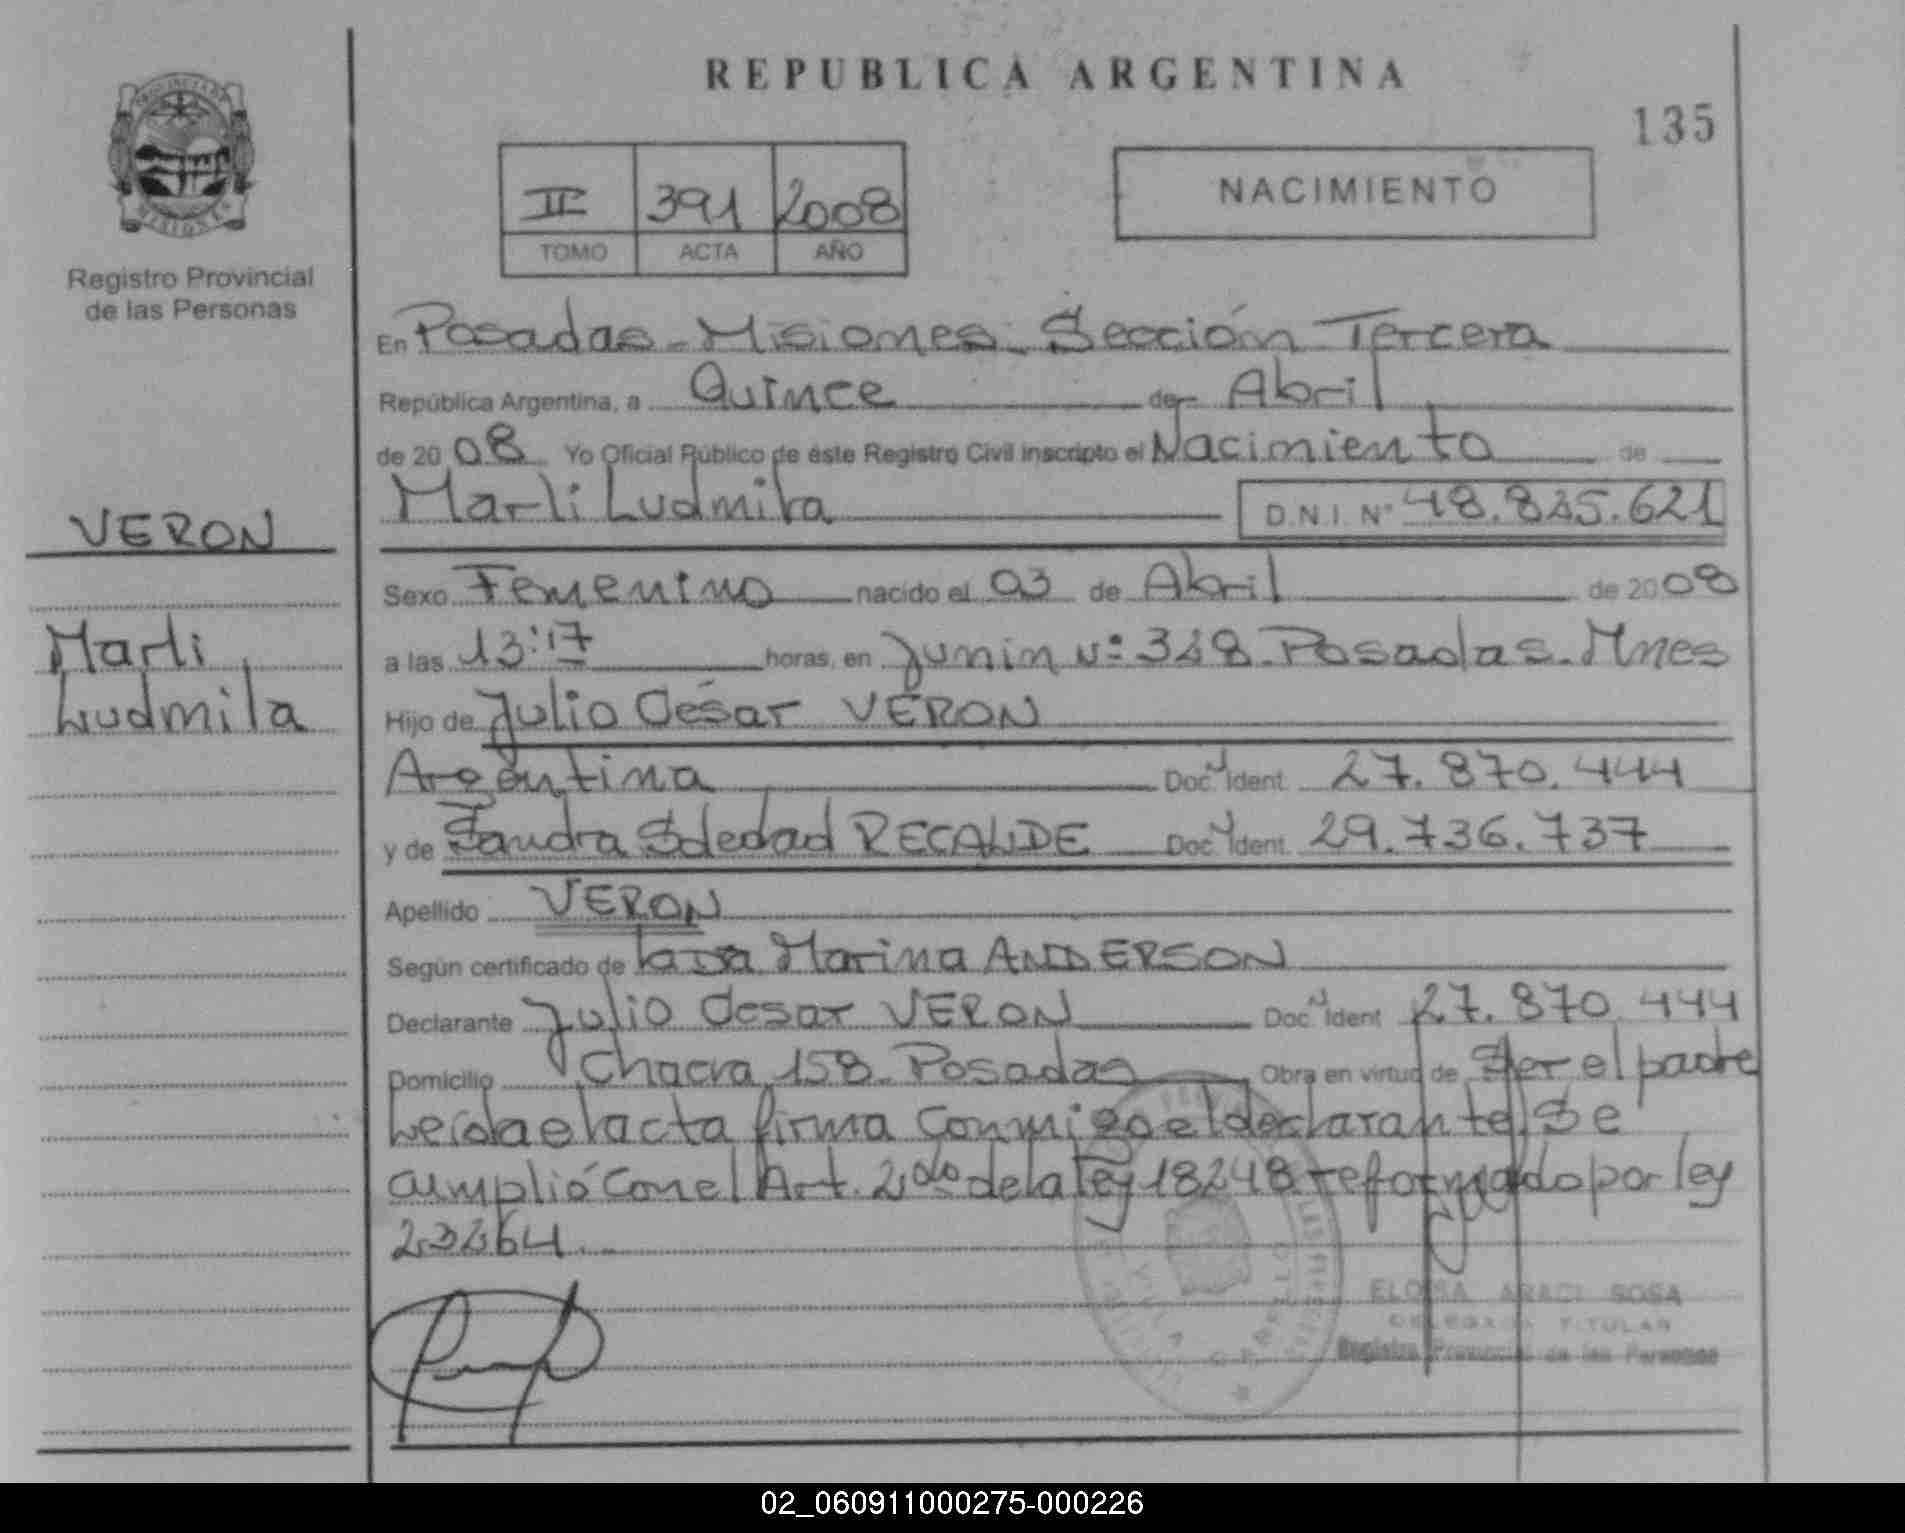 REPUBLICA ARGENTINA
135
PROVINCIA DE
MISIONES
Registro Provincial
de las Personas
II 391 2008
TOMO ACTA AÑO
NACIMIENTO
En Posadas - Misiones - Sección Tercera
República Argentina, a Quince de Abril
de 2008 Yo Oficial Público de éste Registro Civil inscripto el Nacimiento de
Marli Ludmila D.N.I. Nº 48.825.621
VERON
Marli
Ludmila
Sexo Femenino nacido el 03 de Abril de 2008
a las 13:17 horas, en Junin Nº 328 - Posadas - Mnes
Hijo de Julio César VERON
Argentina Doc. Ident. 27.870.444
y de Sandra Soledad RECALDE Doc. Ident. 29.736.737
Apellido VERON
Según certificado de Marina ANDERSON
Declarante Julio Cesar VERON Doc. Ident. 27.870.444
Domicilio Chacra 158 - Posadas Obra en virtud de Ser el padre
Leída el acta firma conmigo el declarante. Se
cumplió con el Art. 2do de la ley 18248 reformado por ley
23264.
ELOISA ARACI SOSA
DELEGADA TITULAR
Registro Provincial de las Personas
02_060911000275-000226